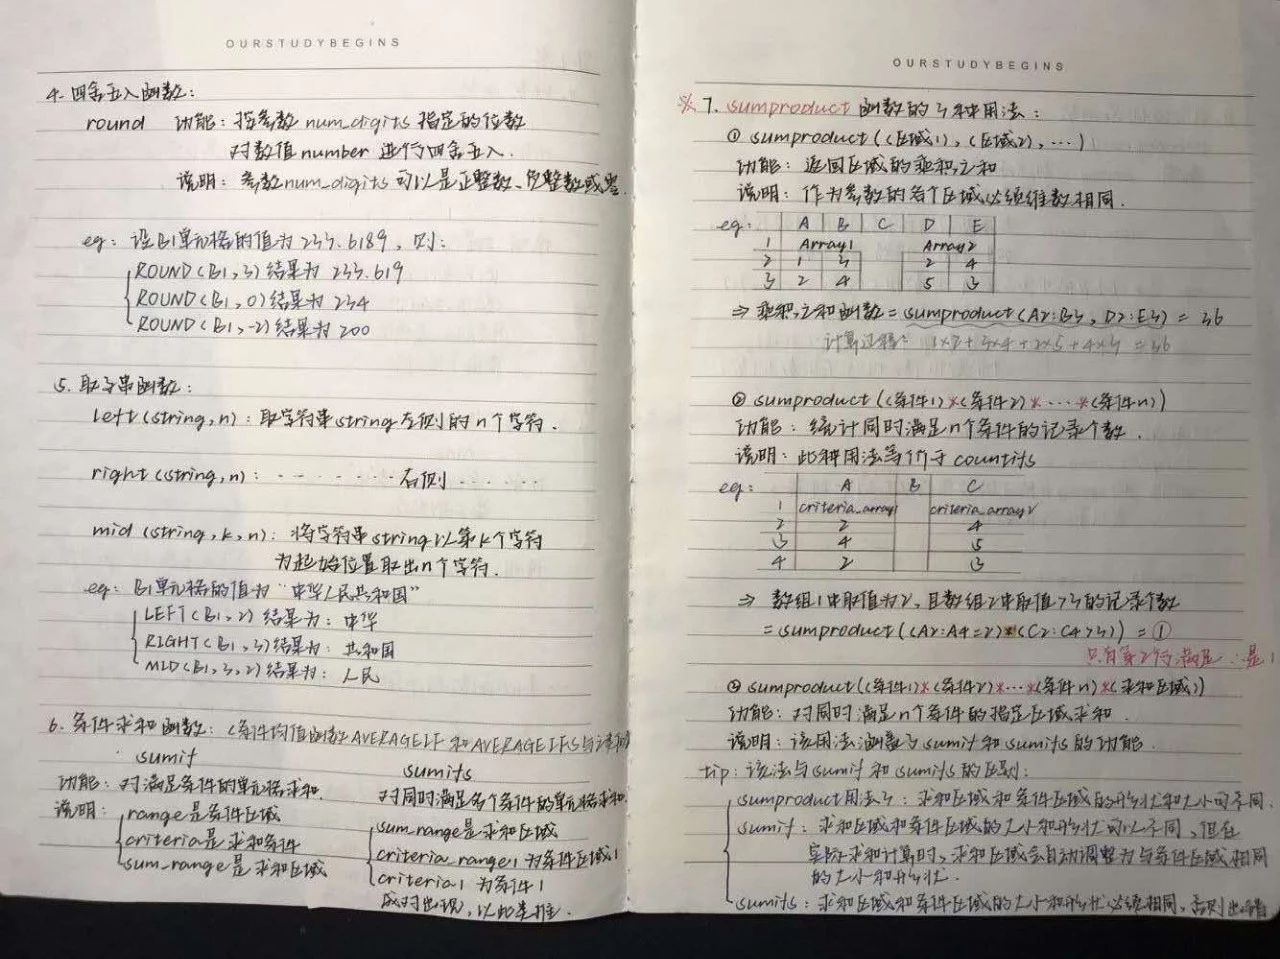 OURSTUDYBEGINS
4. 四舍五入函数：
round 功能：按参数 num_digits 指定的位数
对数值 number 进行四舍五入.
说明：参数 num_digits 可以是正整数、负整数或零.
eg：设B1单元格的值为 233.6189，则：
ROUND(B1,3)结果为 233.619
ROUND(B1,0)结果为 234
ROUND(B1,-2)结果为 200
5. 取子串函数：
left(string,n)：取字符串string左侧的n个字符.
right(string,n)：· · · · · · · 右侧 · · · · · ·
mid(string,k,n)：将字符串string以第k个字符
为起始位置取出n个字符.
eg：B1单元格的值为“中华人民共和国”
LEFT(B1,2)结果为：中华
RIGHT(B1,3)结果为：共和国
MID(B1,3,2)结果为：人民
6. 条件求和函数：(条件均值函数AVERAGEIF和AVERAGEIFS与之
sumif
功能：对满足条件的单元格求和.
说明：range是条件区域
criteria是求和条件
sum_range是求和区域
sumifs
对同时满足多个条件的单元格求和.
sum_range是求和区域
criteria_range1为条件区域1
criteria1 为条件1
成对出现，以此类推.
OURSTUDYBEGINS
※ 7. sumproduct 函数的3种用法：
① sumproduct((区域1),(区域2),···)
功能：返回区域的乘积之和
说明：作为参数的各个区域必须维数相同.
eg： A B C D E
1 Array1 Array2
2 1 3 2 4
3 2 4 5 3
⇒ 乘积之和函数=sumproduct(A2:B3, D2:E3) = 36
计算过程： 1×2+3×4+2×5+4×3 =36
② sumproduct((条件1)*(条件2)*····*(条件n))
功能：统计同时满足n个条件的记录个数.
说明：此种用法等价于countifs
eg： A B C
1 criteria_array1 criteria_array2
2 2 4
3 4 5
4 2 3
⇒ 数组1中取值为2，且数组2中取值>3的记录个数
=sumproduct((A2:A4=2)*(C2:C4>3)) = ①
只有第2行满足 ∴是1
③ sumproduct((条件1)*(条件2)*···*(条件n)*(求和区域))
功能：对同时满足n个条件的指定区域求和.
说明：该用法涵盖了sumif和sumifs的功能.
tip：该法与sumif和sumifs的区别：
sumproduct用法3：求和区域和条件区域的形状和大小可不同.
sumif：求和区域和条件区域的大小和形状可以不同，但在
实际求和计算时，求和区域会自动调整为与条件区域相同
的大小和形状.
sumifs：求和区域和条件区域的大小和形状必须相同，否则出错